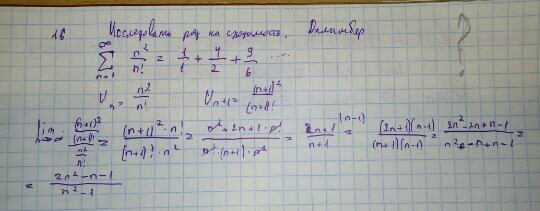 16 Исследовать ряд на сходимость. Даламбер ?
∞ ∑ n=1 n²/n! = 1/1 + 4/2 + 9/6 ....
Uₙ = n²/n! Uₙ₊₁ = (n+1)²/(n+1)!
lim n→∞ ((n+1)²/(n+1)!)/(n²/n!) = ((n+1)²·n!)/((n+1)!·n²) = (n²+2n+1·n!)/(n!·(n+1)·n²) = (2n+1)/(n+1) (n-1) = ((2n+1)(n-1))/((n+1)(n-1)) = (2n²-2n+n-1)/(n²-n+n-1) =
= (2n²-n-1)/(n²-1)